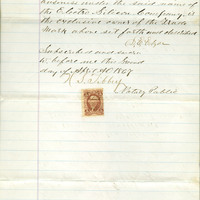 business under the said name of
the Electro Silicon Company, is
the exclusive owner of the Trade
Mark above set forth and described
Subscribed and sworn
to before me this
day of Sept. 1867
Notary Public